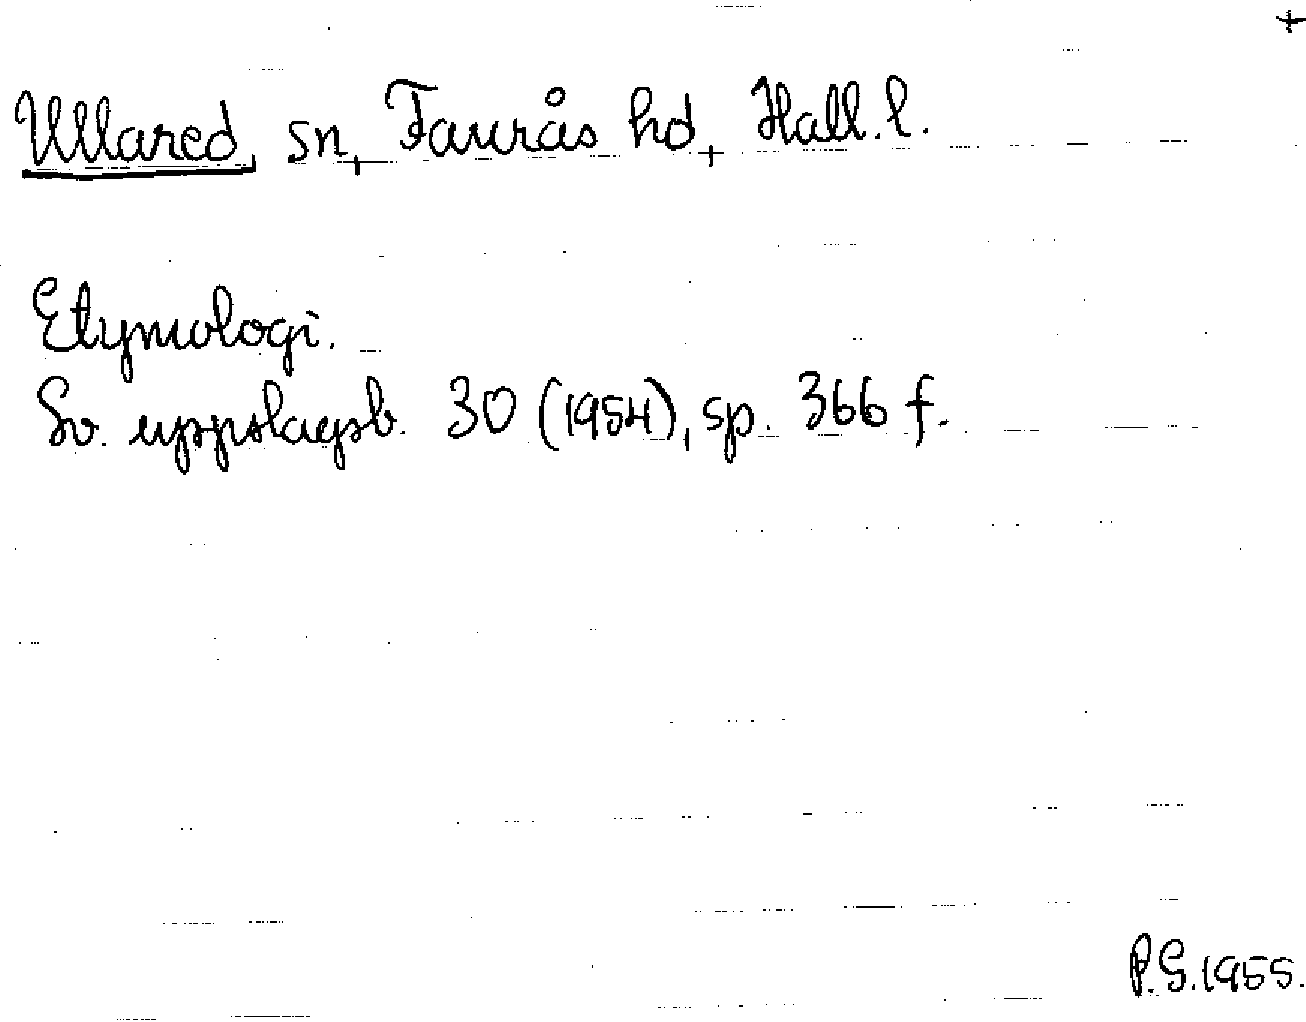 +
Ullared, sn, Faurås hd, Hall. l.
Etymologi.
Sv. uppslagsb. 30 (1954), sp. 366 f.
P.G. 1955.